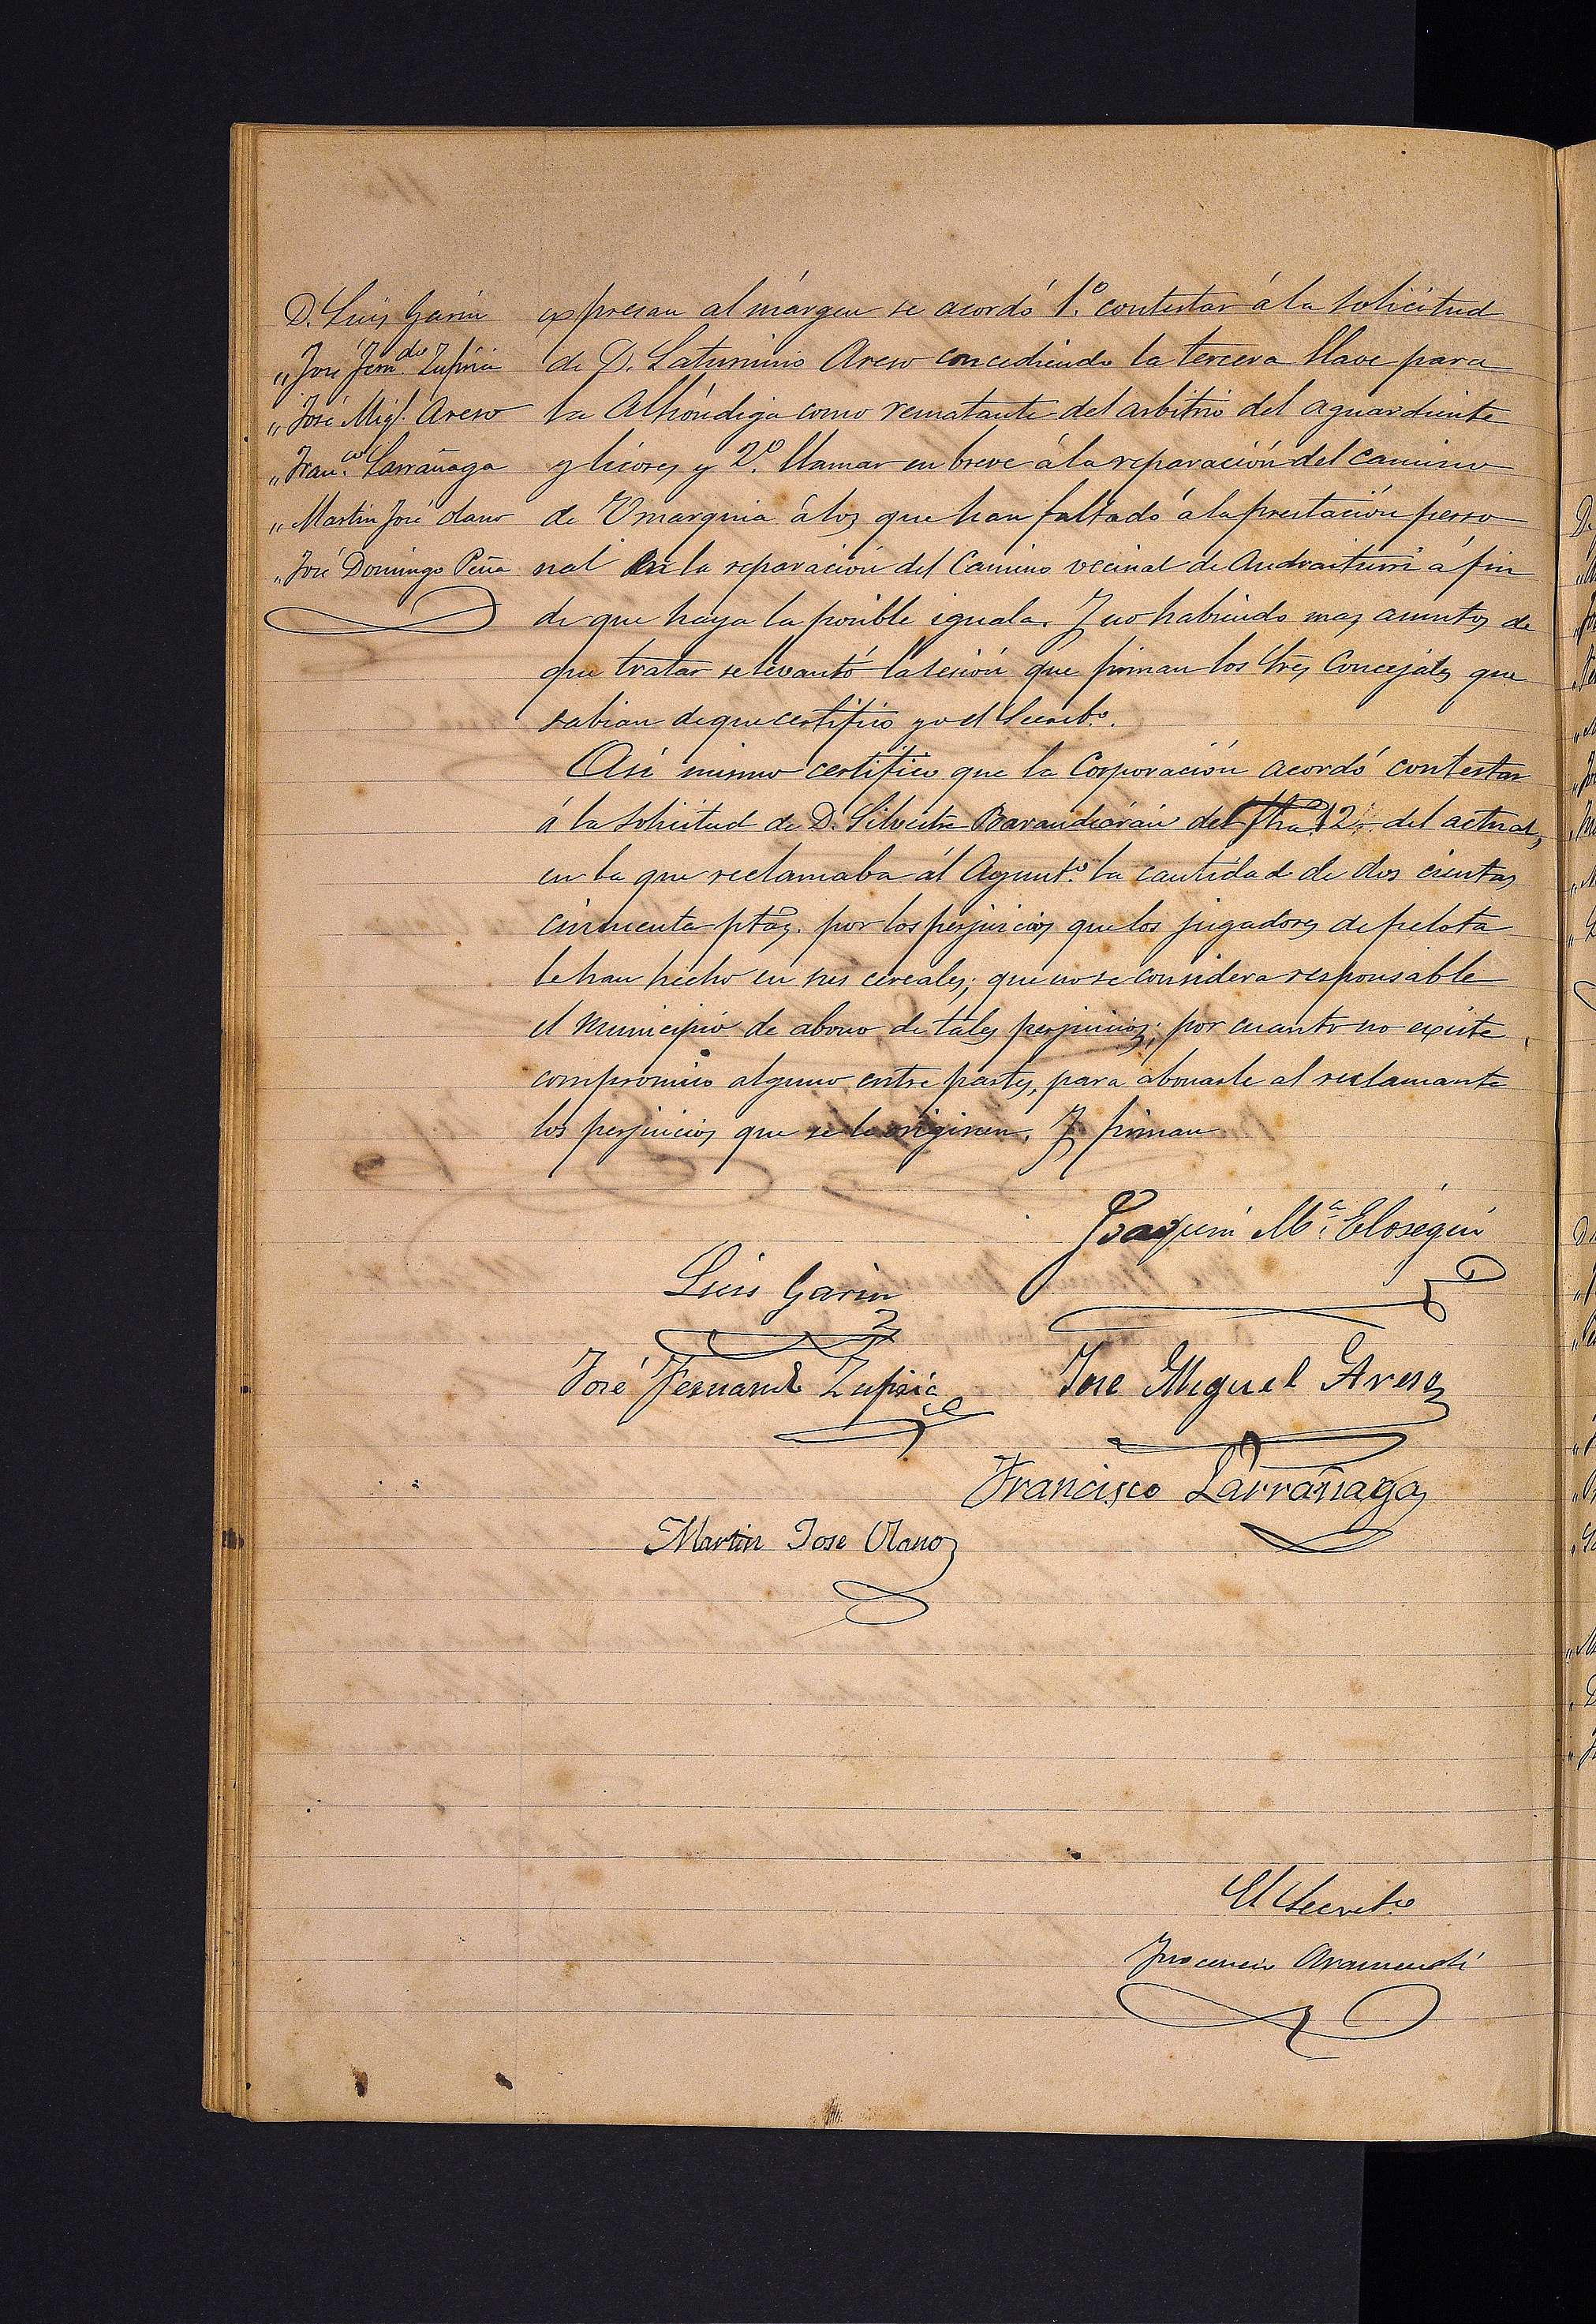 D. Luis Garin
„ José Fern.do Zufiria
„ José Migl. Areso
„ Fran.co Larrañaga
„ Martin José Olano
„ José Domingo Peña
expresan al márgen se acordó 1.º contestar á la solicitud
de D. Saturnino Areso concediendo la tercera llave para
la Alhóndiga como rematante del arbitrio del aguardiente
y licores y 2.º llamar en breve á la reparación del camino
de á los que han faltado á la prestación perso
nal en la reparación del Camino vecinal de á fin
de que haya la posible iguala. Y no habiendo mas asuntos de
que tratar se levantó la sesión que firman los Sres Concejales que
sabian de que certifico yo el Secret.º.
Asi mismo certifico que la Corporación acordó contestar
á la solicitud de D. Silvestre Barandiarán del 12 del actual,
en la que reclamaba al Ayunt.º la cantidad de dos cientas
cincuenta ptas. por los perjuicios que los jugadores de pelota
le han hecho en sus cereales; que no se considera responsable
el Municipio de abono de tales perjuicios; por cuanto no existe
compromiso alguno entre partes, para abonarle al reclamante
los perjuicios que se le originen. Y firman
Joaquin M.a Elosegui
Luis Garin
José Fernando Zufiria
Jose Miguel Areso
Francisco Larrañaga
Martin Jose Olano
El Secret.º
Inocencio Aramendi